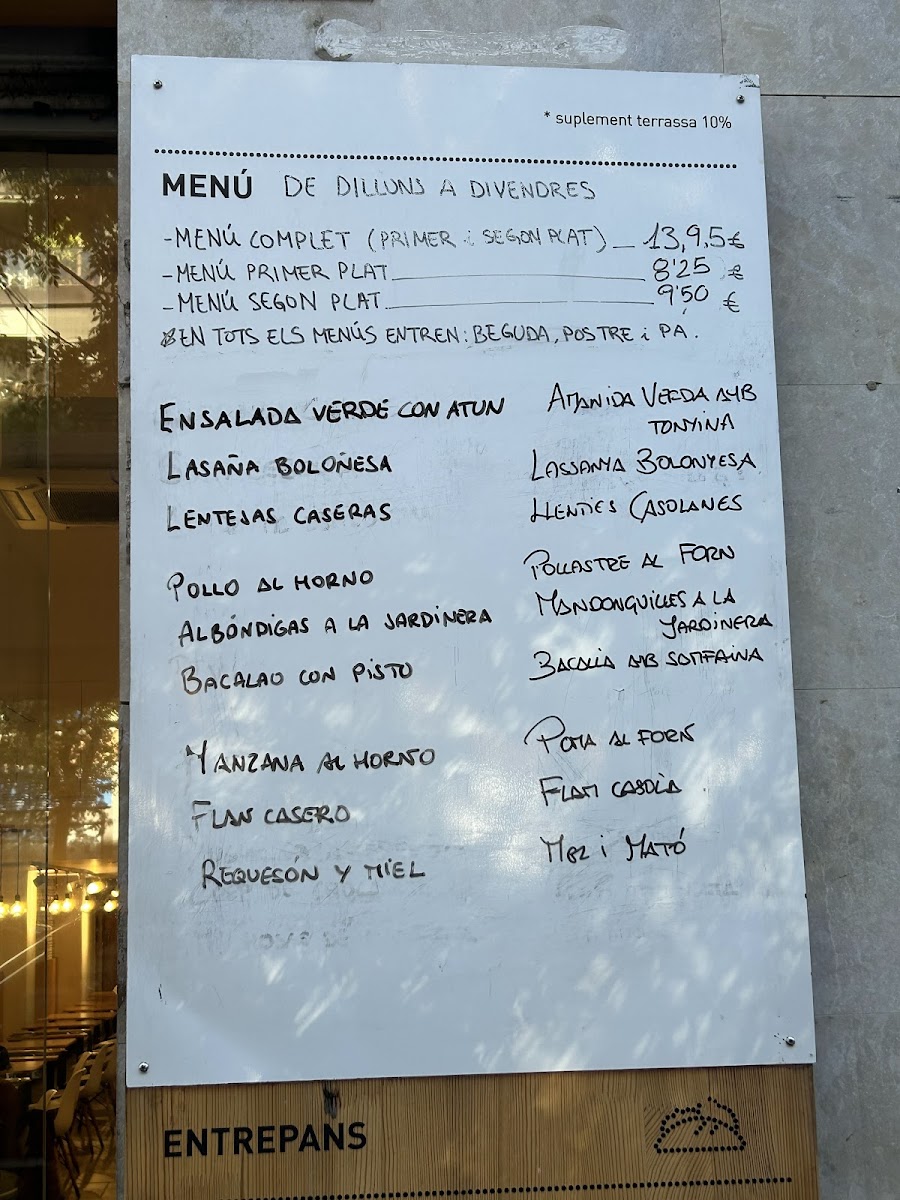 * suplement terrassa 10%
MENÚ DE DILLUNS A DIVENDRES
-MENÚ COMPLET (PRIMER i SEGON PLAT) _ 13,9,5€
-MENÚ PRIMER PLAT 8'25 €
-MENÚ SEGON PLAT 9'50 €
EN TOTS ELS MENÚS ENTREN: BEGUDA, POSTRE i PA.
ENSALADA VERDE CON ATUN
AMANIDA VERDA AMB
TONYINA
LASAÑA BOLOÑESA
LASSANYA BOLONYESA
LENTEJAS CASERAS
LLENTIES CASOLANES
POLLO AL HORNO
POLLASTRE AL FORN
ALBÓNDIGAS A LA JARDINERA
MANDONGUILLES A LA
JARDINERA
BACALAO CON PISTO
BACALLÀ AMB SAMFAINA
MANZANA AL HORNO
POMA AL FORN
FLAN CASERO
FLAM CASOLÀ
REQUESÓN Y MIEL
MEL i MATÓ
ENTREPANS